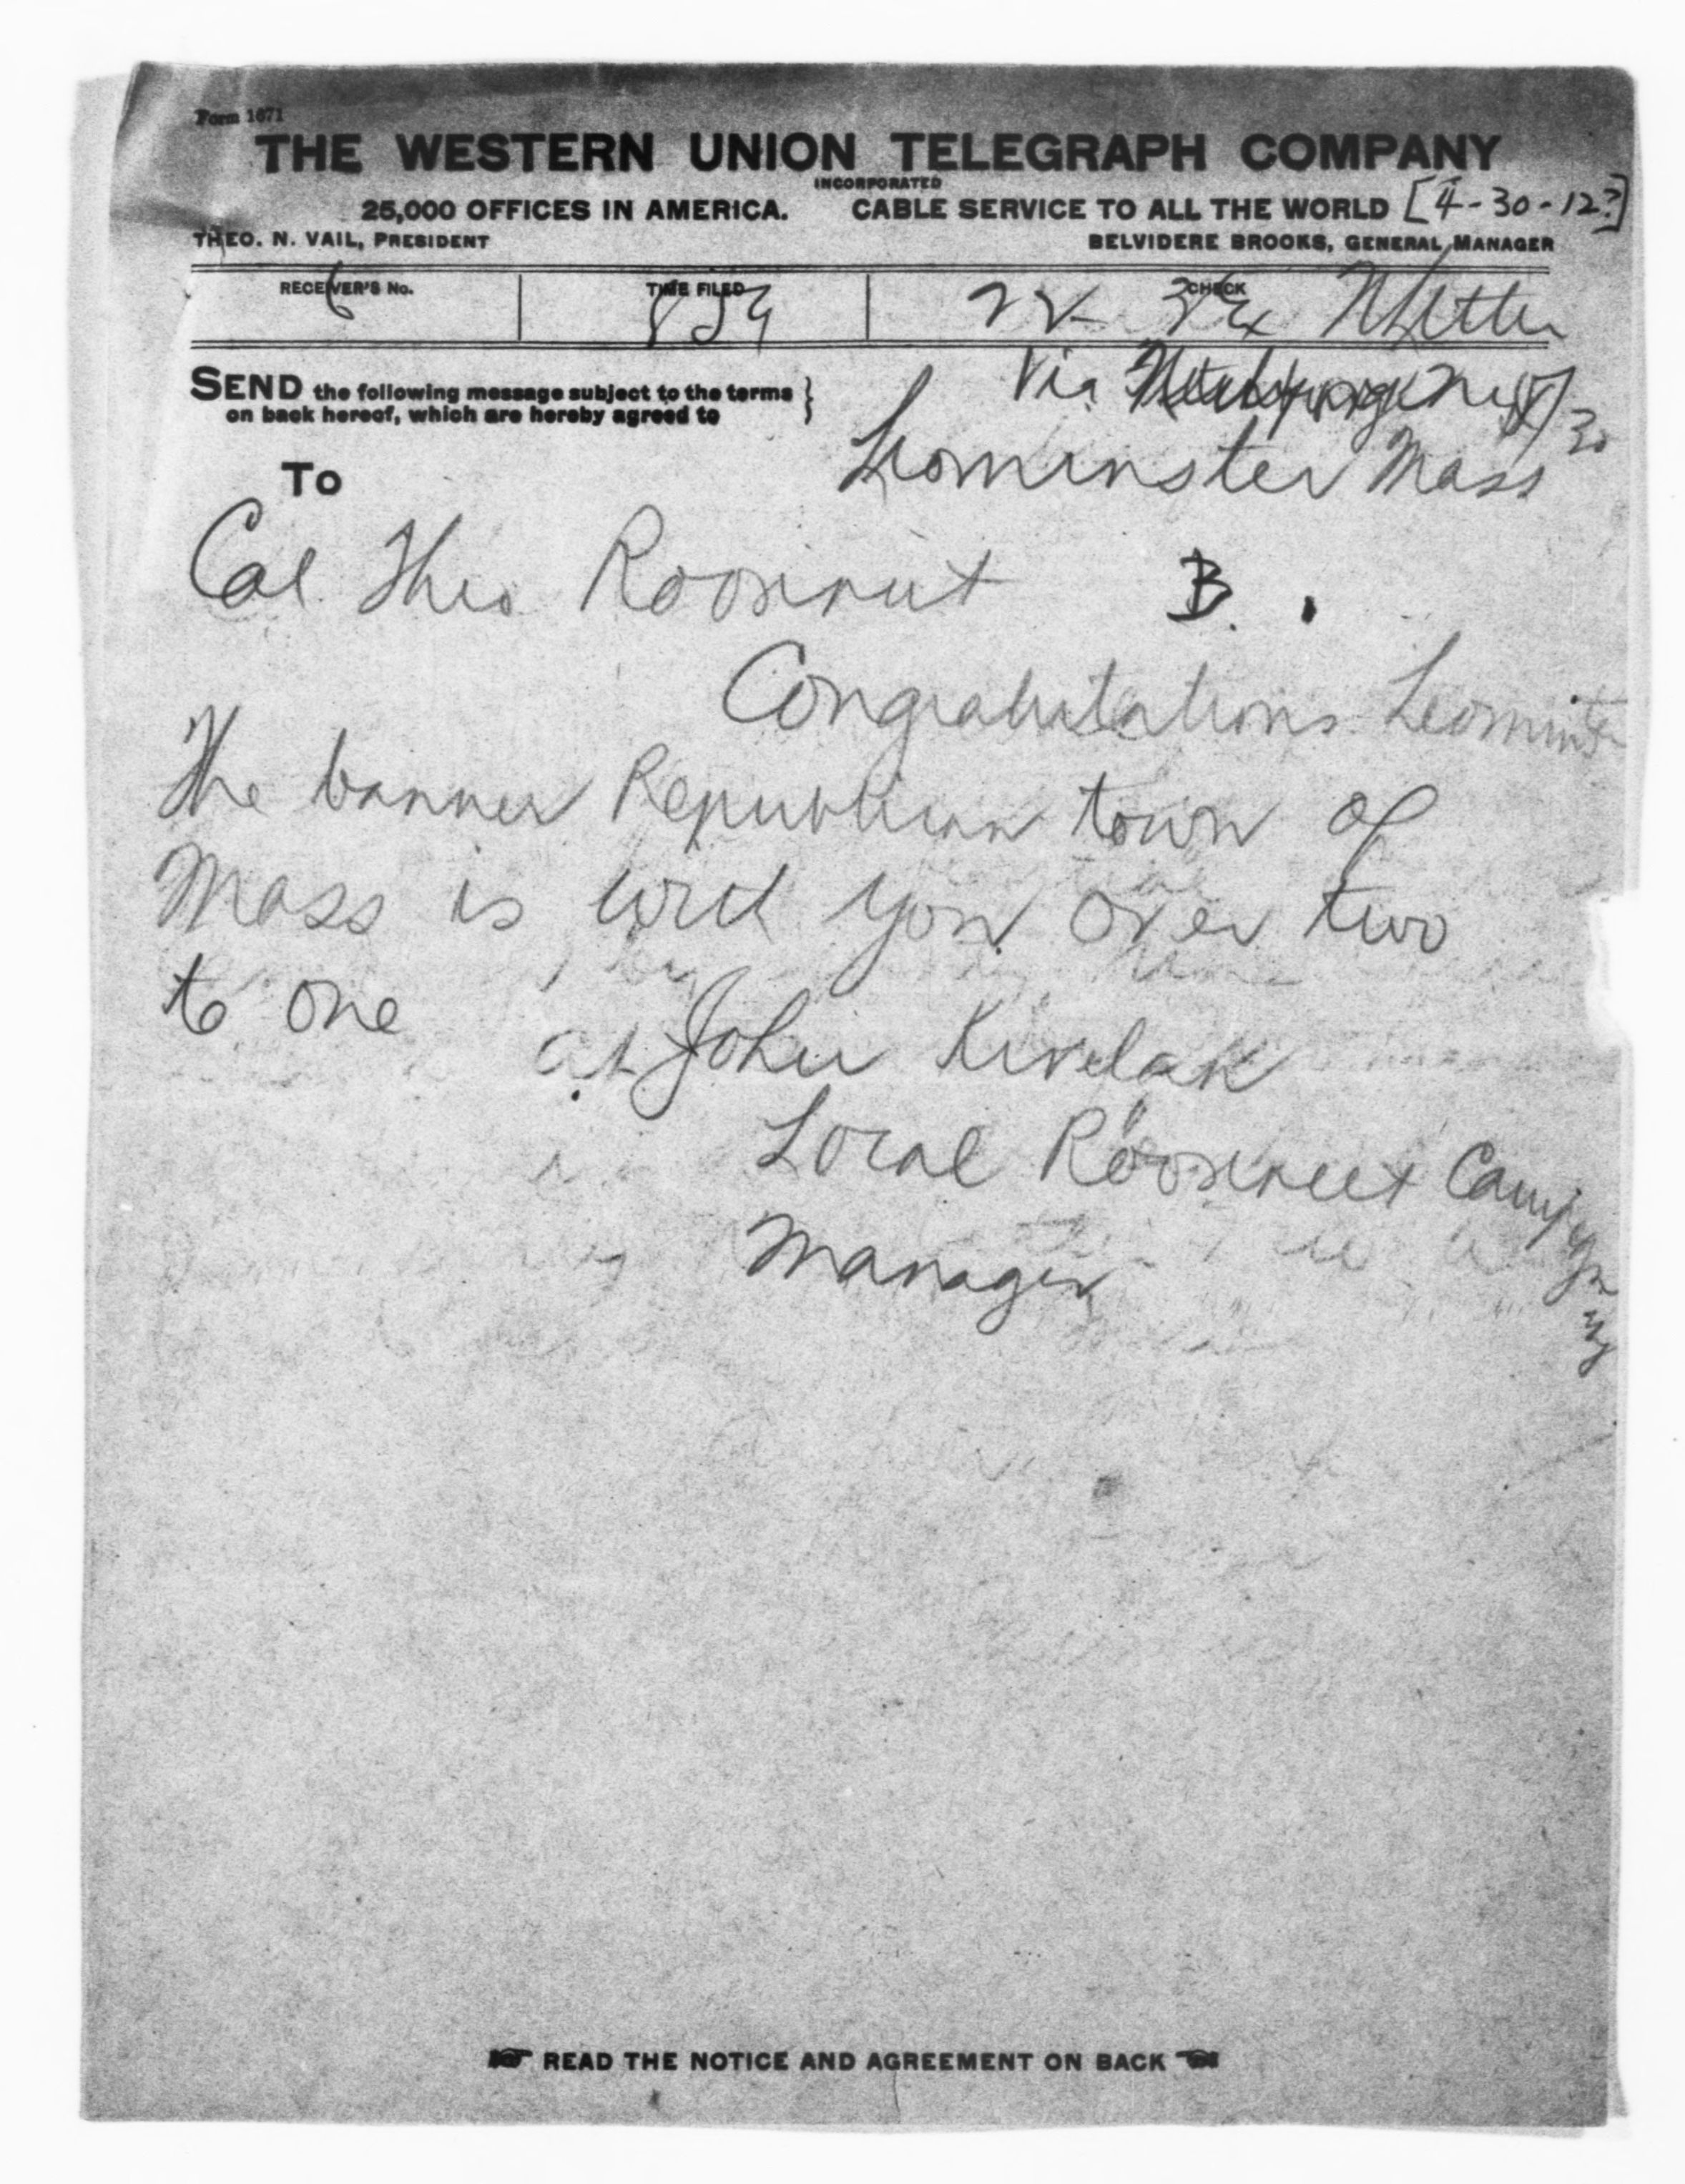 Form 1671
THE WESTERN UNION TELEGRAPH COMPANY
INCORPORATED
25,000 OFFICES IN AMERICA. CABLE SERVICE TO ALL THE WORLD [4-30-12?]
THEO. N. VAIL, PRESIDENT BELVIDERE BROOKS, GENERAL MANAGER
RECEIVER'S No. TIME FILED CHECK
6 859 22
SEND the following message subject to the terms
on back hereof, which are hereby agreed to
Via
30
Leominster Mass
To
Col. Theo Roosevelt B.
Congratulations Leominster
The banner Republican town of
Mass is with you over two
to one
John
Local Roosevelt Campaign
Manager
READ THE NOTICE AND AGREEMENT ON BACK